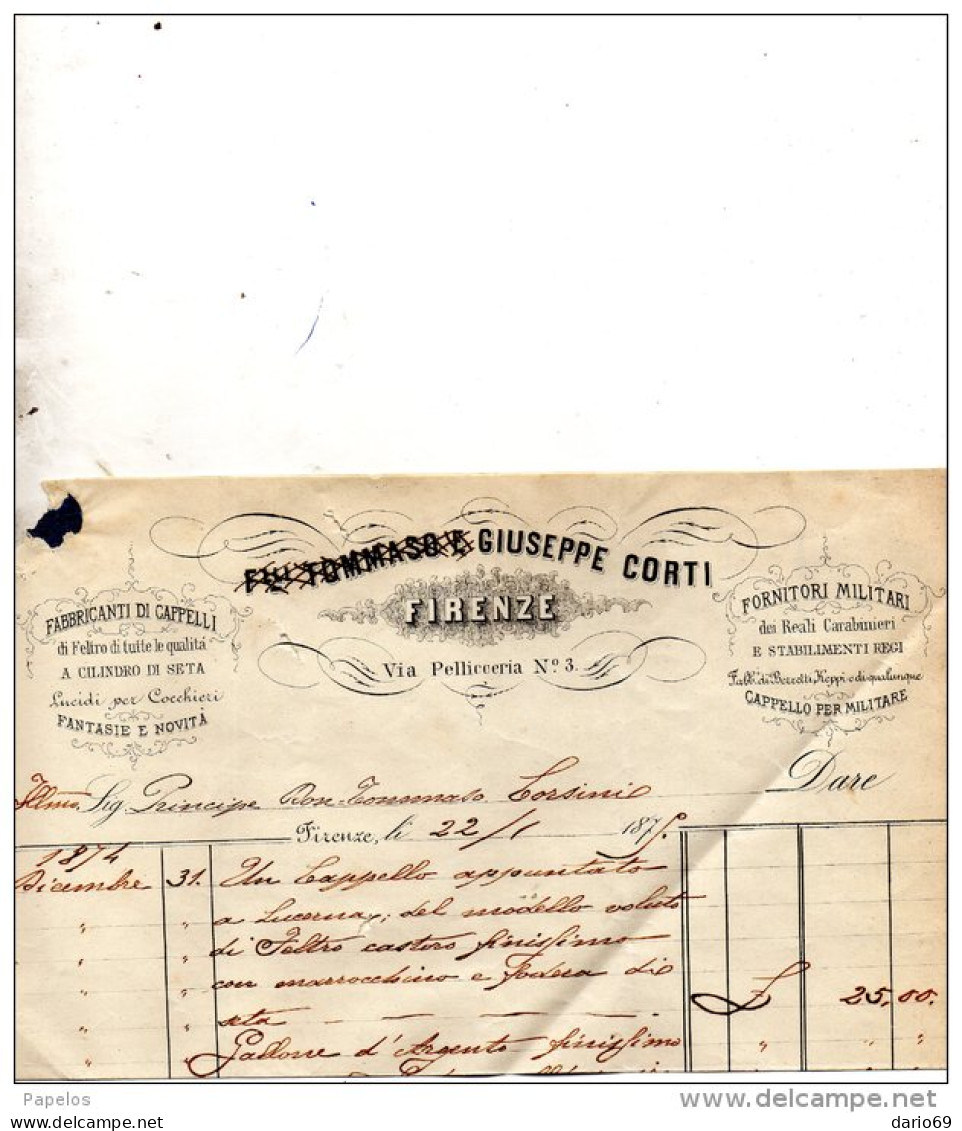 Flli TOMMASO E GIUSEPPE CORTI
FIRENZE
Via Pellicceria No. 3.
FABBRICANTI DI CAPPELLI
di Feltro di tutte le qualitá
A CILINDRO DI SETA
Lucidi per Cocchieri
FANTASIE E NOVITÀ
FORNITORI MILITARI
dei Reali Carabinieri
E STABILIMENTI REGI
Fabb. di Berretti, Keppi e di qualunque
CAPPELLO PER MILITARE
Dare
Illmo. Sig. Principe Don Tommaso Corsini
Firenze, li 22/1 1875
1874
Dicembre 31. Un Cappello appuntato
" " a Lucerna, del modello voluto
" " di Feltro castoro finissimo
" " con marrocchino e fodera di
" " seta — — — — £ 25,00.
" " Gallone d'Argento finissimo " "
Papelos
means.delcampe.net
dario69